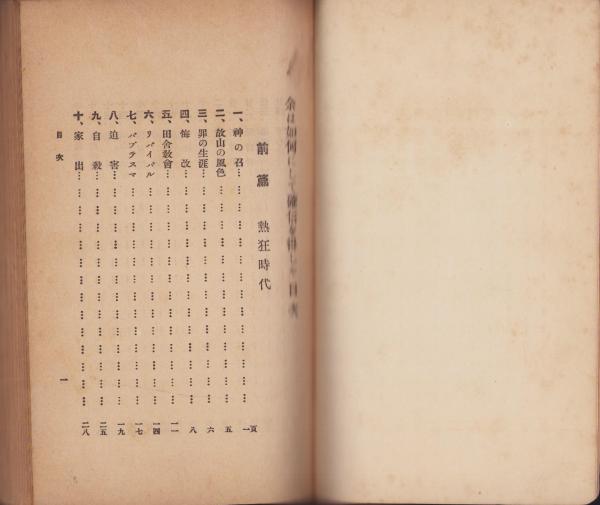 余は如何にして確信を得しや目次
前篇　熱狂時代
一、神の召………………………………………一頁
二、故山の風色…………………………………五
三、罪の生涯……………………………………六
四、悔　改………………………………………八
五、田舍敎會……………………………………一一
六、リバイバル…………………………………一四
七、バプテスマ…………………………………一七
八、迫　害………………………………………一九
九、自　殺………………………………………二五
十、家　出………………………………………二八
目　次
一